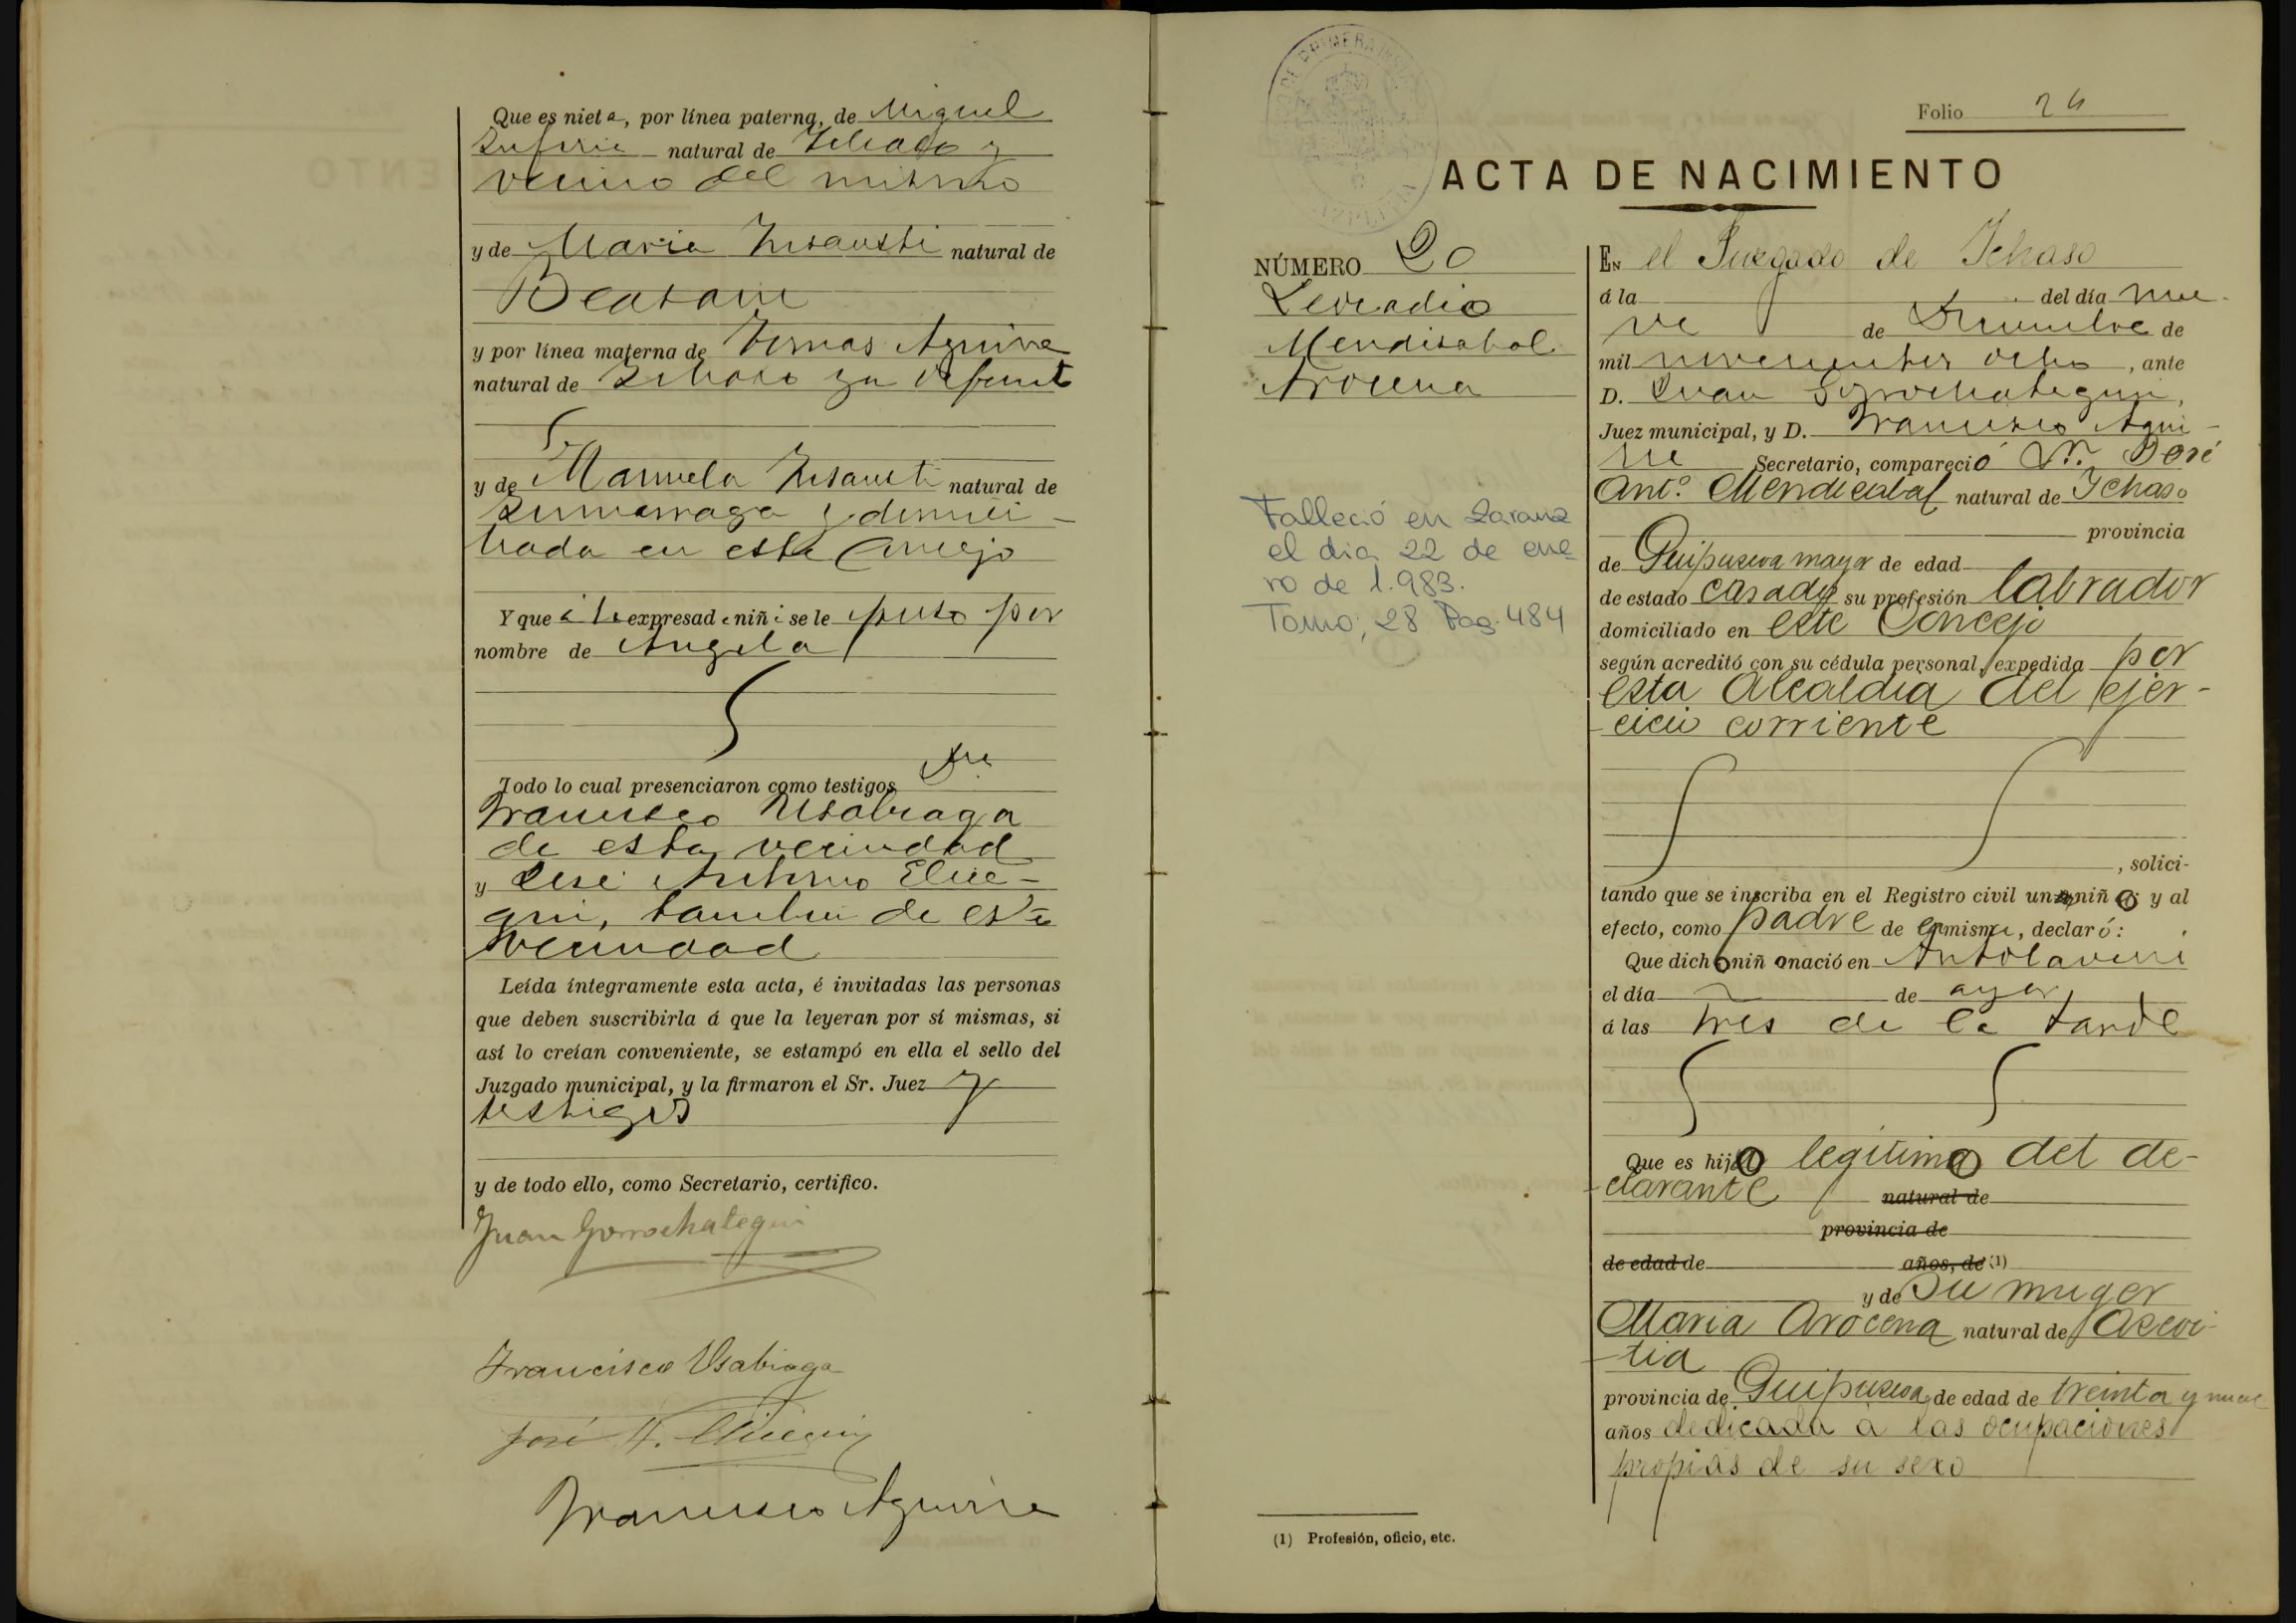 Que es nieta, por línea paterna, de Miguel
natural de Ychaso y
vecino del mismo
y de Maria Ynsausti natural de
Beasain
y por línea materna de Tomas Aguirre
natural de Ychaso ya difunto
y de Manuela Ynsausti natural de
Zumarraga y domici-
liada en este Concejo
Y que á la expresada niña se le puso por
nombre de Angela
Todo lo cual presenciaron como testigos Dn
Francisco Usabiaga
de esta vecindad
y José Antonio Elice-
gui, tambien de esta
vecindad
Leída íntegramente esta acta, é invitadas las personas
que deben suscribirla á que la leyeran por sí mismas, si
así lo creían conveniente, se estampó en ella el sello del
Juzgado municipal, y la firmaron el Sr. Juez y
testigos
y de todo ello, como Secretario, certifico.
Juan Gorrochategui
Francisco Usabiaga
José A. Elicegui
Francisco Aguirre
Folio 24
ACTA DE NACIMIENTO
NÚMERO 20
Leocadio
Mendizabal
Arocena
Falleció en Zarauz
el dia 22 de ene-
ro de 1.983.
Tomo; 28 Pag. 484
EN el Juzgado de Ychaso
á la del día nue-
ve de Diciembre de
mil novecientos ocho, ante
D. Juan Gorrochategui,
Juez municipal, y D. Francisco Agui-
rre Secretario, compareció D. José
Ant.º Mendizabal natural de Ychaso
provincia
de Guipuzcoa mayor de edad
de estado casado su profesión labrador
domiciliado en este Concejo
según acreditó con su cédula personal, expedida por
esta Alcaldia del ejer-
cicio corriente
, solici-
tando que se inscriba en el Registro civil un niño y al
efecto, como padre de la misma, declaró:
Que dicho niño nació en
el día de ayer
á las tres de la tarde
Que es hijo legitimo del de-
clarante natural de
provincia de
de edad de años, de (1)
y de su muger
Maria Arocena natural de Azcoi-
tia
provincia de Guipuzcoa de edad de treinta y nueve
años dedicada á las ocupaciones
propias de su sexo
(1) Profesión, oficio, etc.